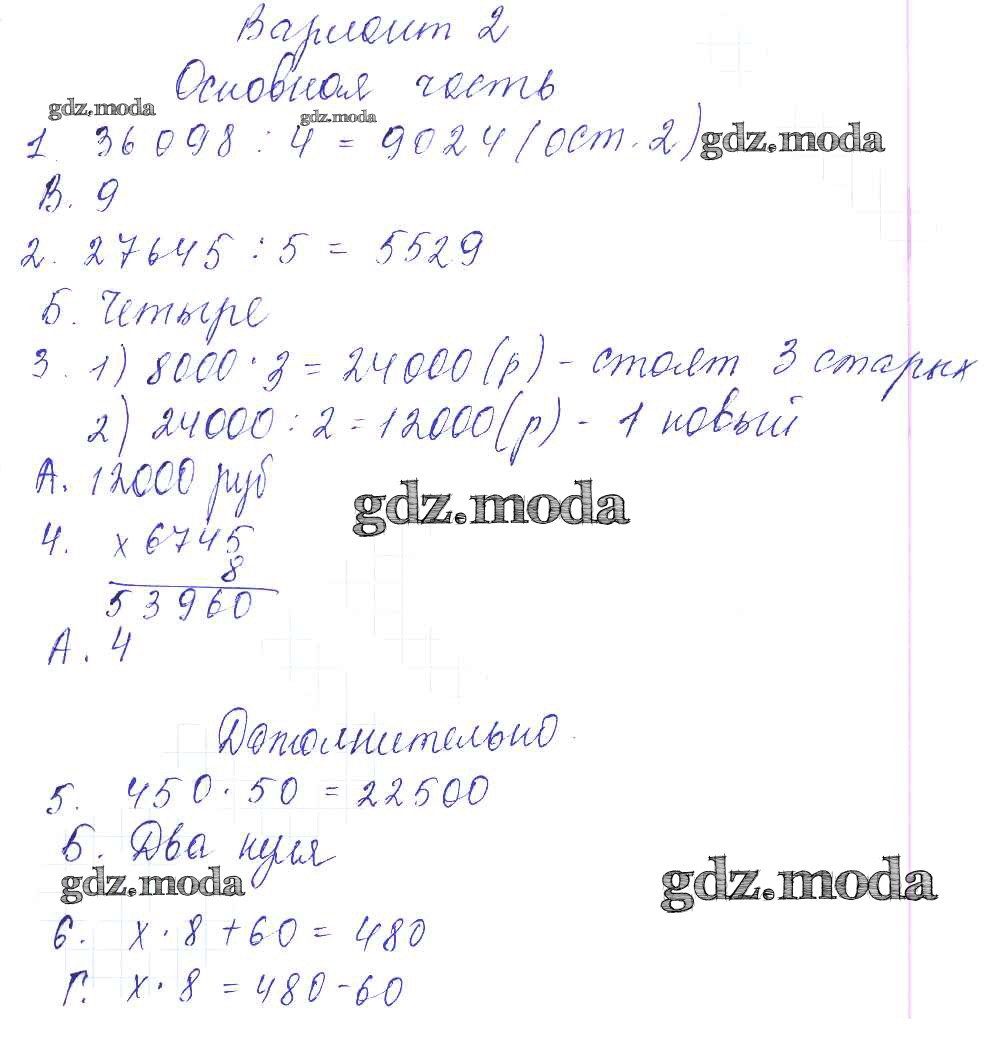 Вариант 2
Основная часть
gdz.moda
gdz.moda
1. 36098 : 4 = 9024 (ост. 2) gdz.moda
В. 9
2. 27645 : 5 = 5529
Б. Четыре
3. 1) 8000 · 3 = 24000 (р) - стоят 3 старых
2) 24000 : 2 = 12000 (р) - 1 новый
А. 12000 руб
gdz.moda
4. х 6745
8
53960
А. 4
Дополнительно
5. 450 · 50 = 22500
Б. Два нуля
gdz.moda
gdz.moda
6. х · 8 + 60 = 480
Г. х · 8 = 480 - 60